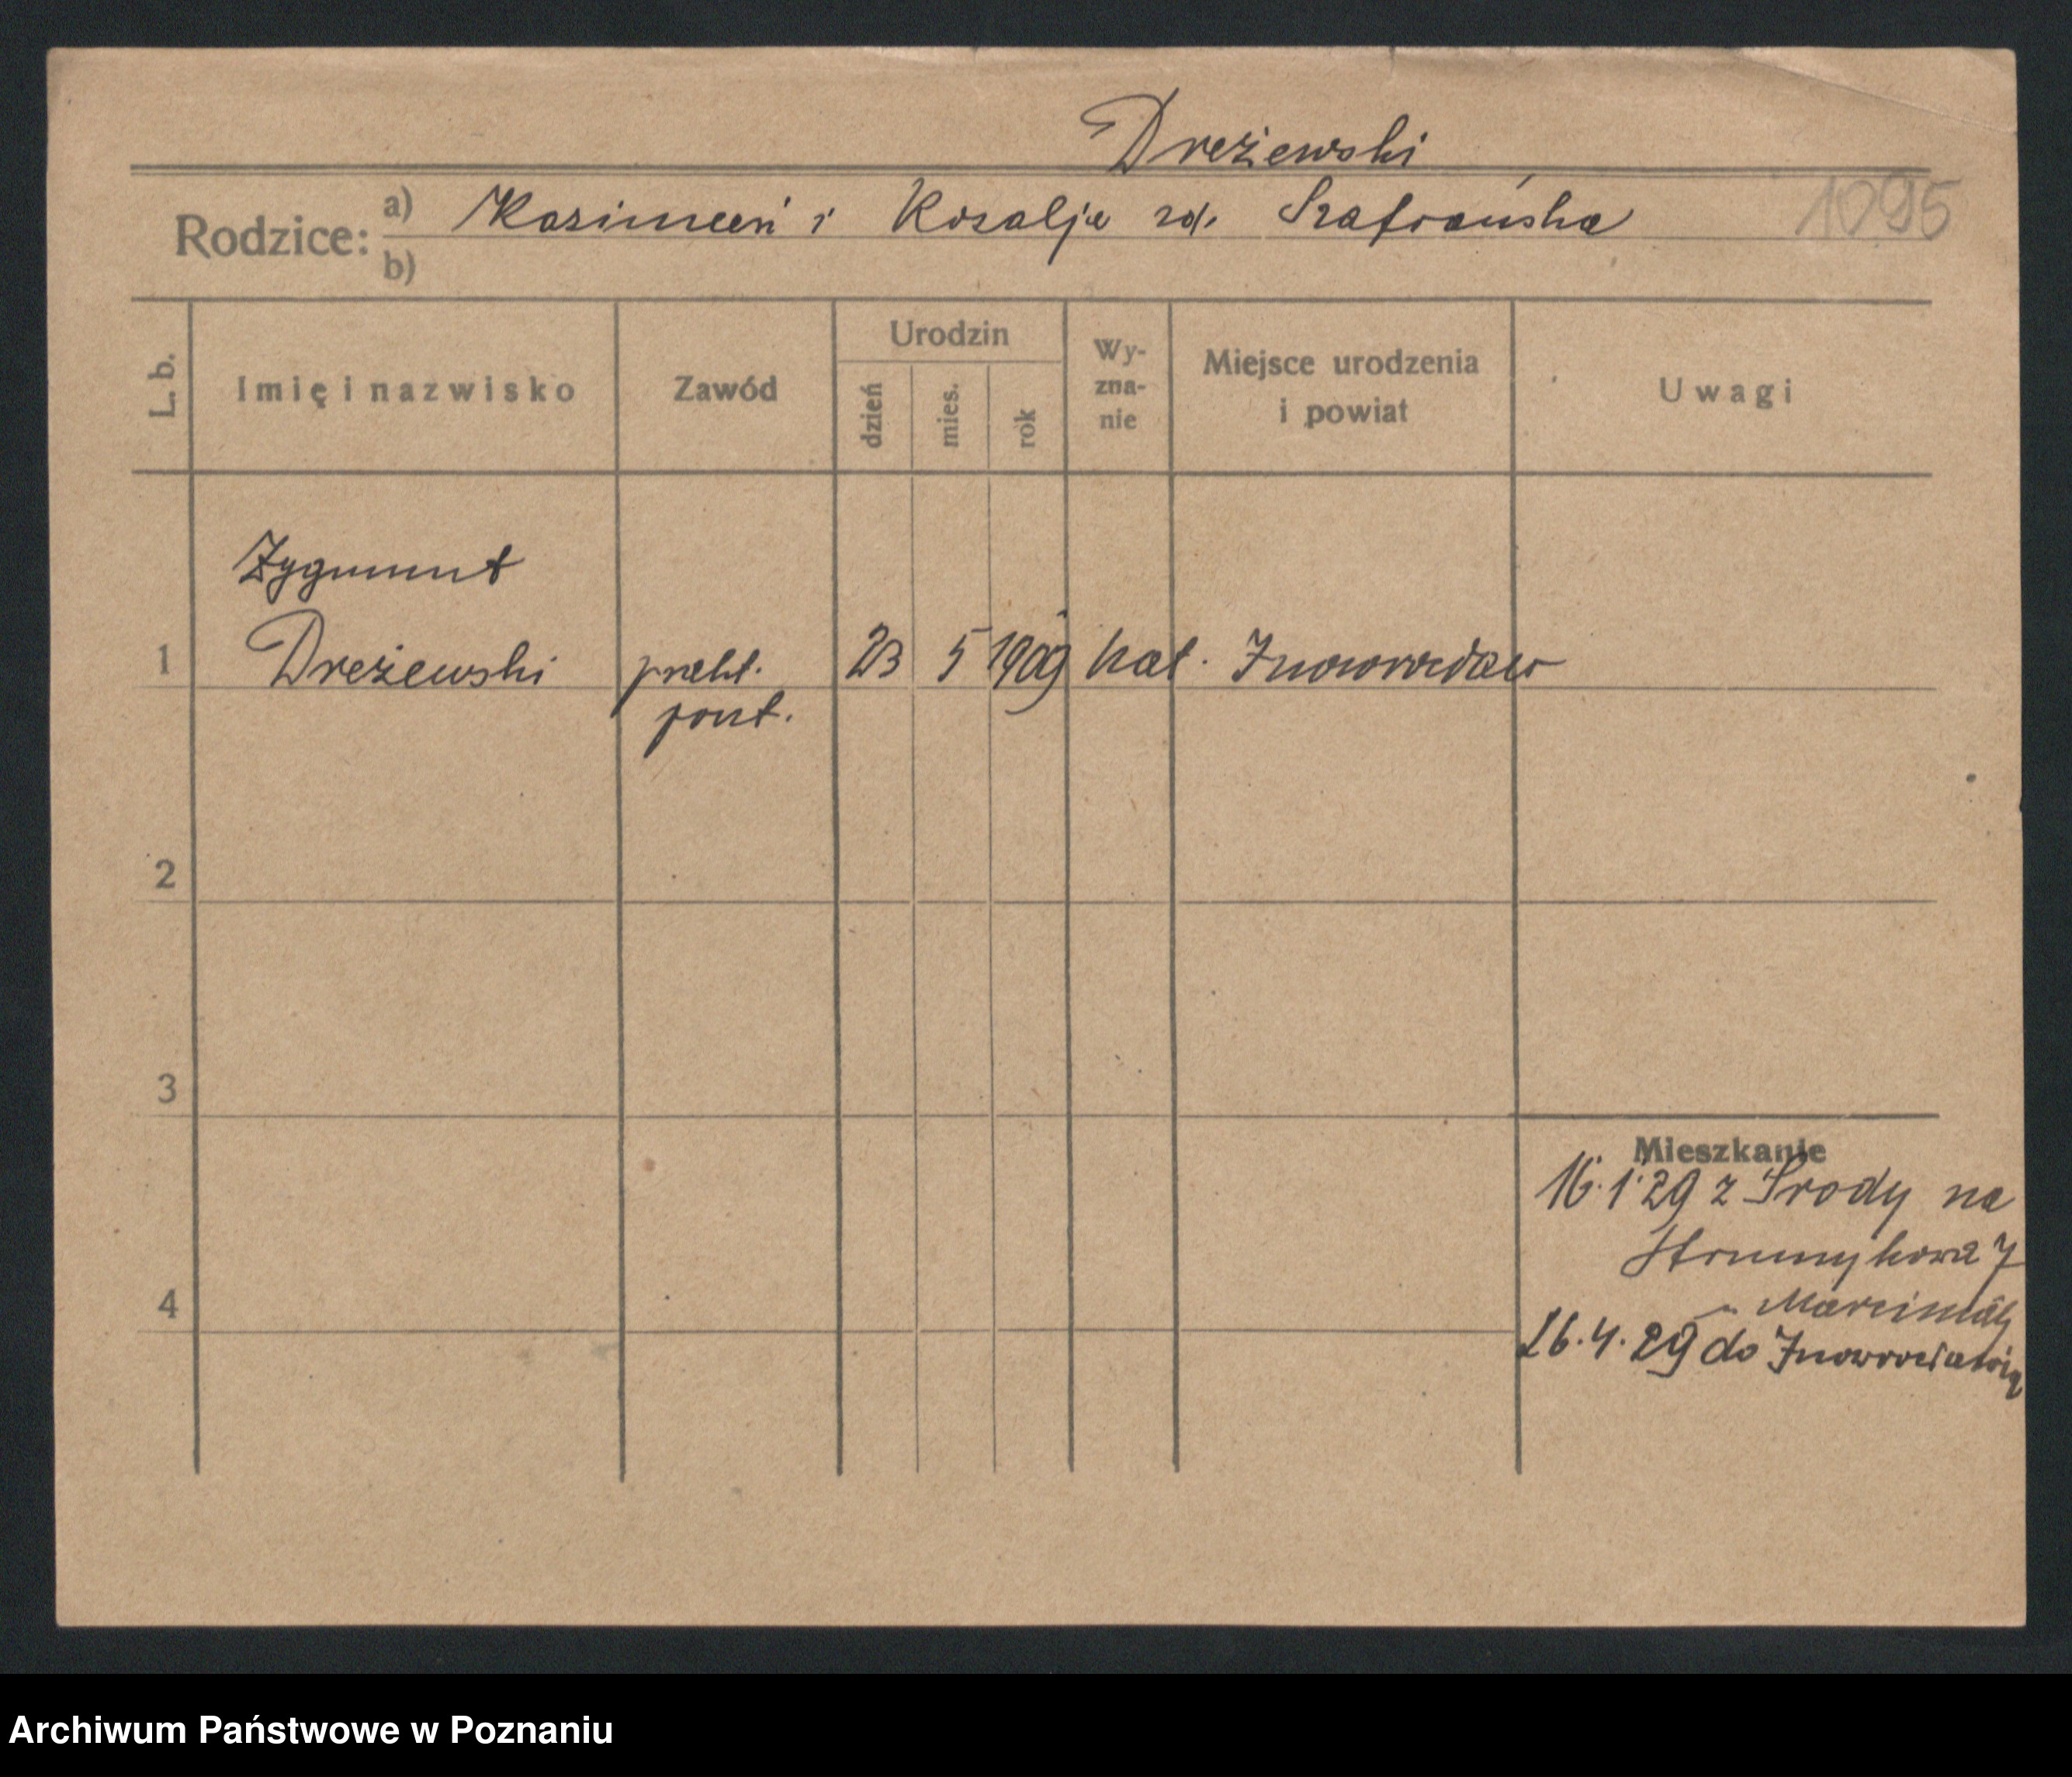 Dreżewski
Rodzice: a) Kazimierz i Rozalja rd. Szafrańska 1095
b)
L. b. Imię i nazwisko Zawód Urodzin dzień mies. rok Wy-zna-nie Miejsce urodzenia i powiat Uwagi
Zygmunt
1 Dreżewski prakt. 23 5 1909 kat. Inowrocław
2
3
Mieszkanie
16.1.29 z Środy na
Strumykowa 7
4
26.4.29 do Inowrocławia
Archiwum Państwowe w Poznaniu